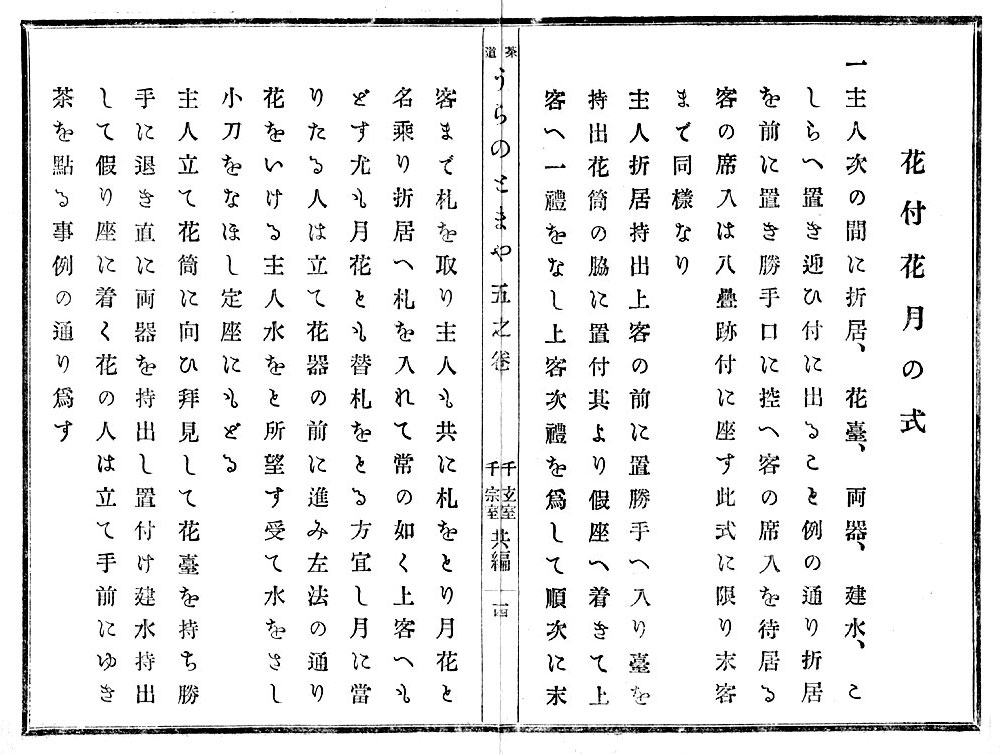 花付花月の式
一主人次の間に折居、花臺、両器、建水、こ
しらへ置き迎ひ付に出ること例の通り折居
を前に置き勝手口に控へ客の席入を待居る
客の席入は八疊跡付に座す此式に限り末客
まで同樣なり
主人折居持出上客の前に置勝手へ入り臺を
持出花筒の脇に置付其より假座へ着きて上
客へ一禮をなし上客次禮を爲して順次に末
茶道 うらのとまや 五之卷 千玄室 千宗室 共編 十四
客まで札を取り主人も共に札をとり月花と
名乘り折居へ札を入れて常の如く上客へも
どす尤も月花とも替札をとる方宜し月に當
りたる人は立て花器の前に進み左法の通り
花をいける主人水をと所望す受て水をさし
小刀をなほし定座にもどる
主人立て花筒に向ひ拜見して花臺を持ち勝
手に退き直に両器を持出し置付け建水持出
して假り座に着く花の人は立て手前にゆき
茶を點る事例の通り爲す